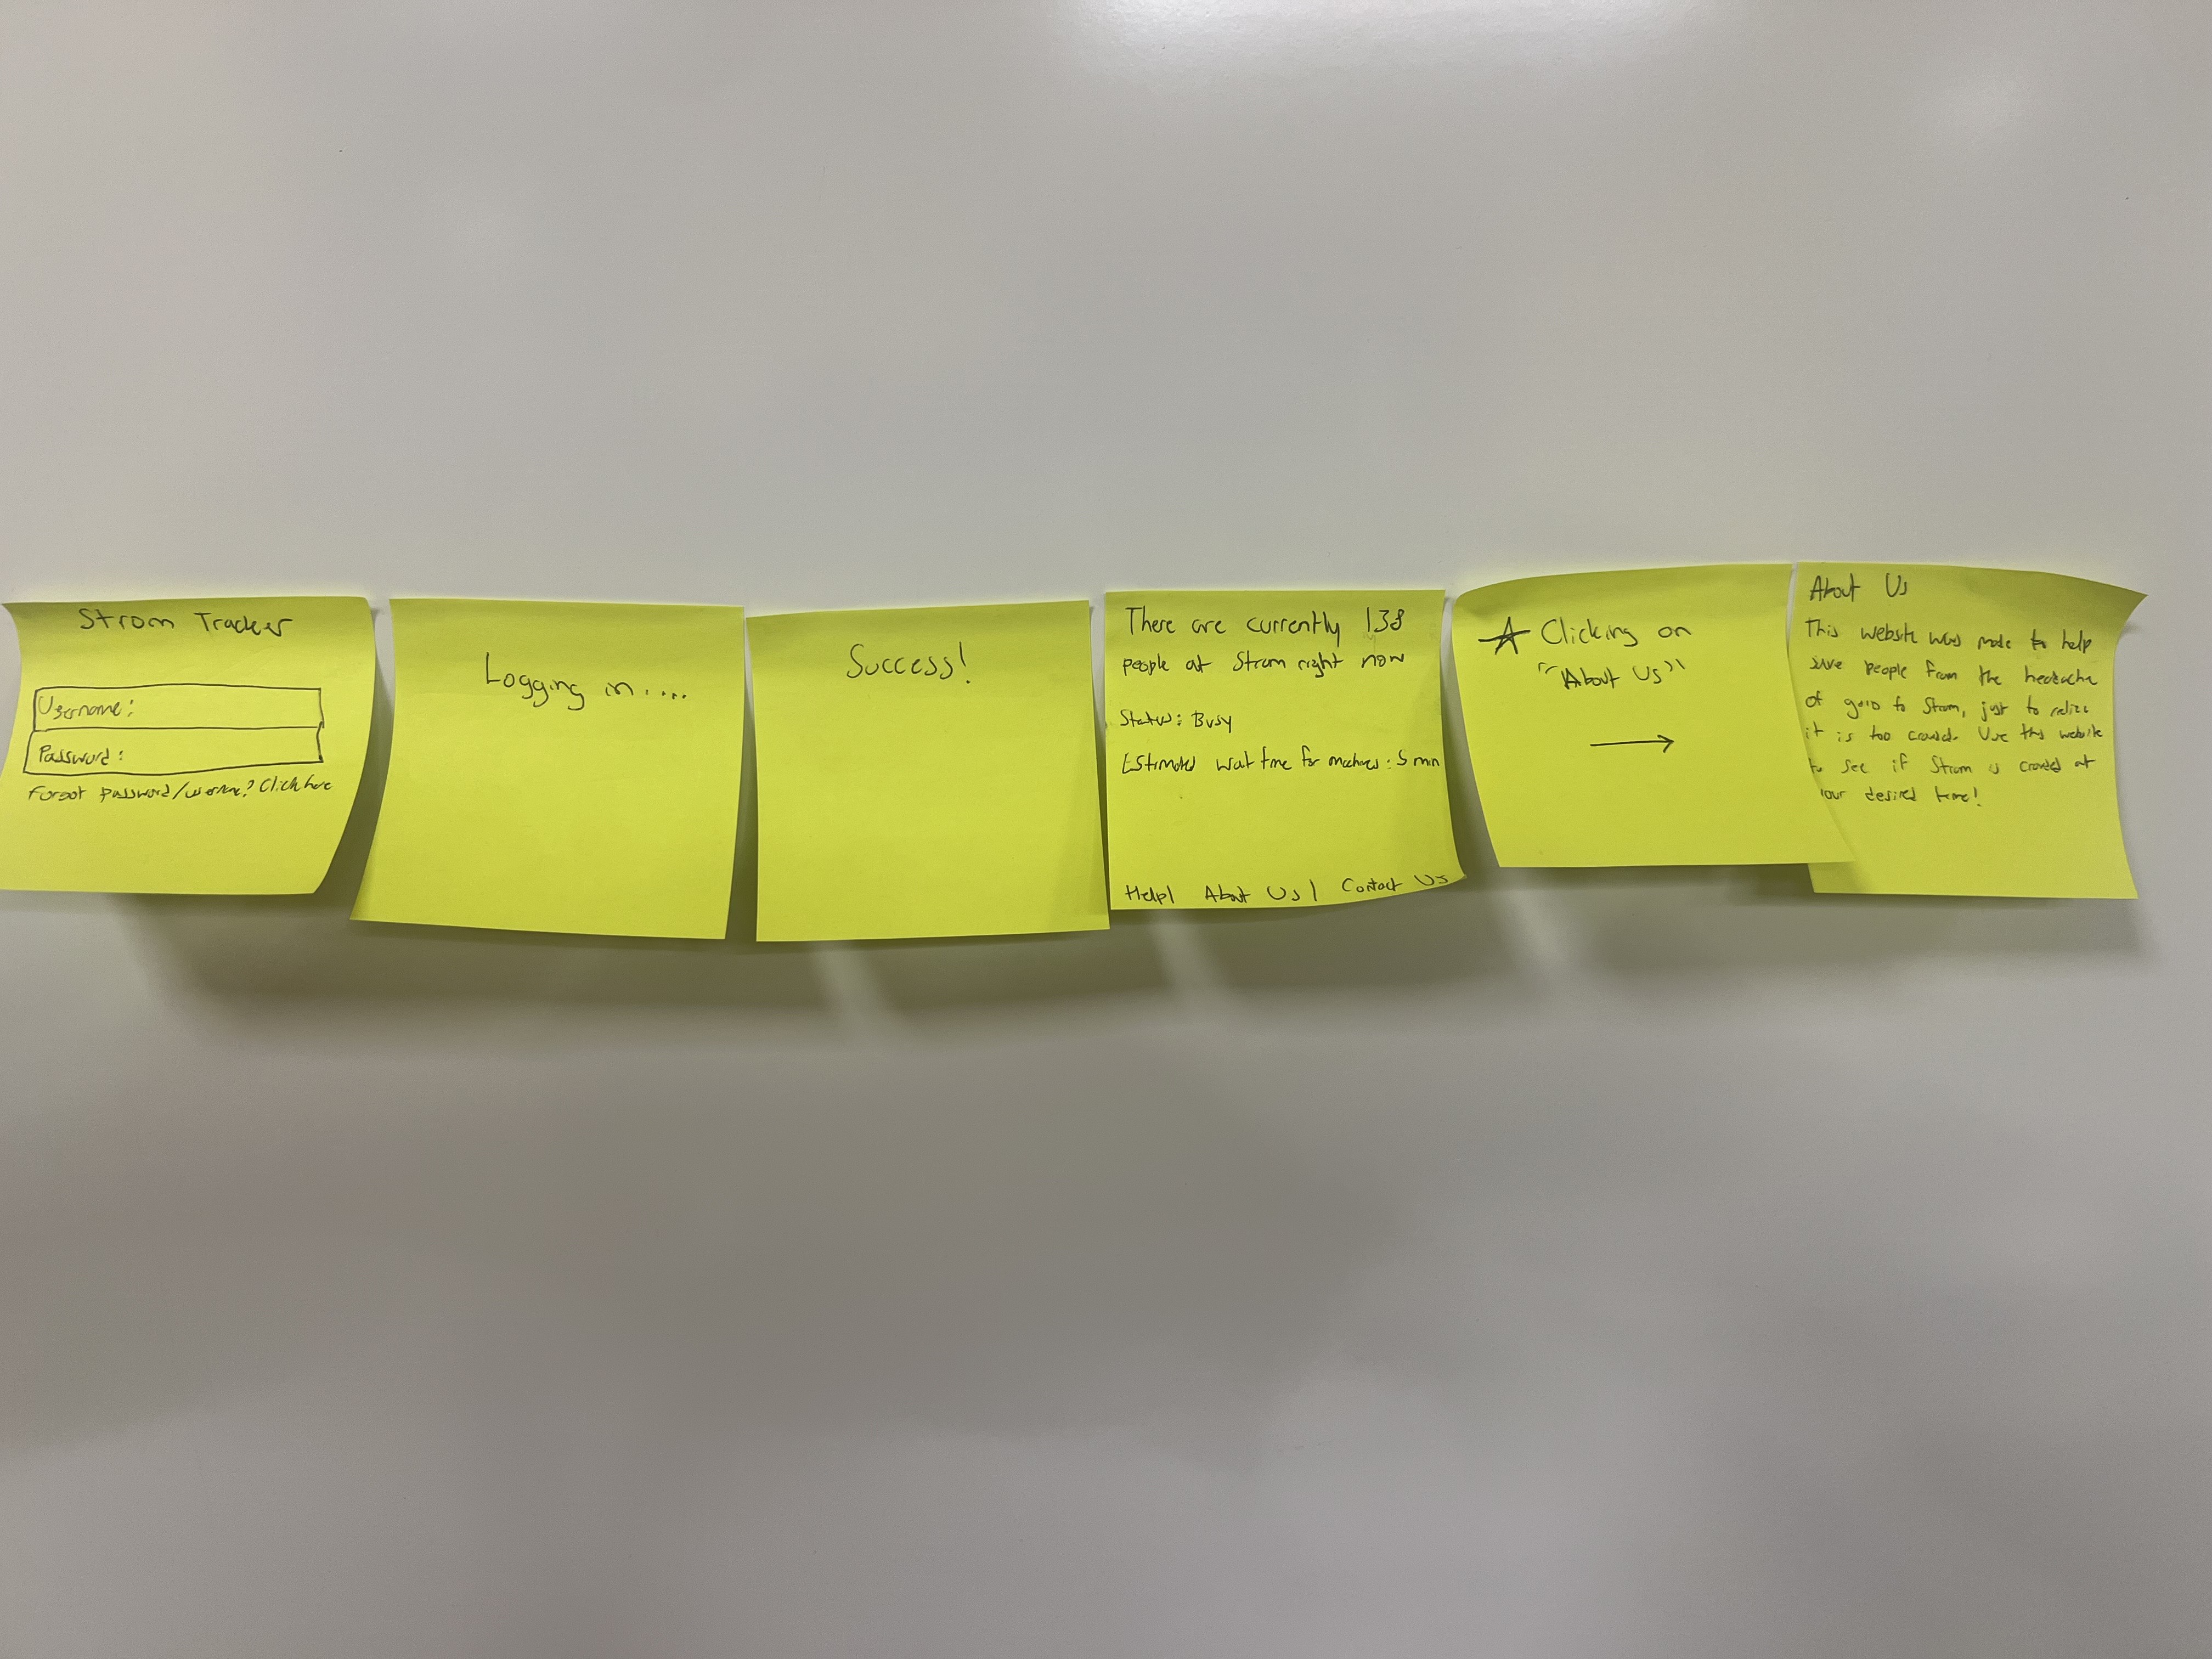 Strom Tracker
Username:
Password:
Forgot password/username? Click here
Logging in....
Success!
There are currently 138
people at Strom right now
Status: Busy
Estimated wait time for machines: 5 min
Help| About Us| Contact Us
Clicking on
"About Us"
→
About Us
This website was made to help
save people from the headache
of goin to Strom, just to relize
it is too crowded. Use this website
to see if Strom is crowded at
your desired time!